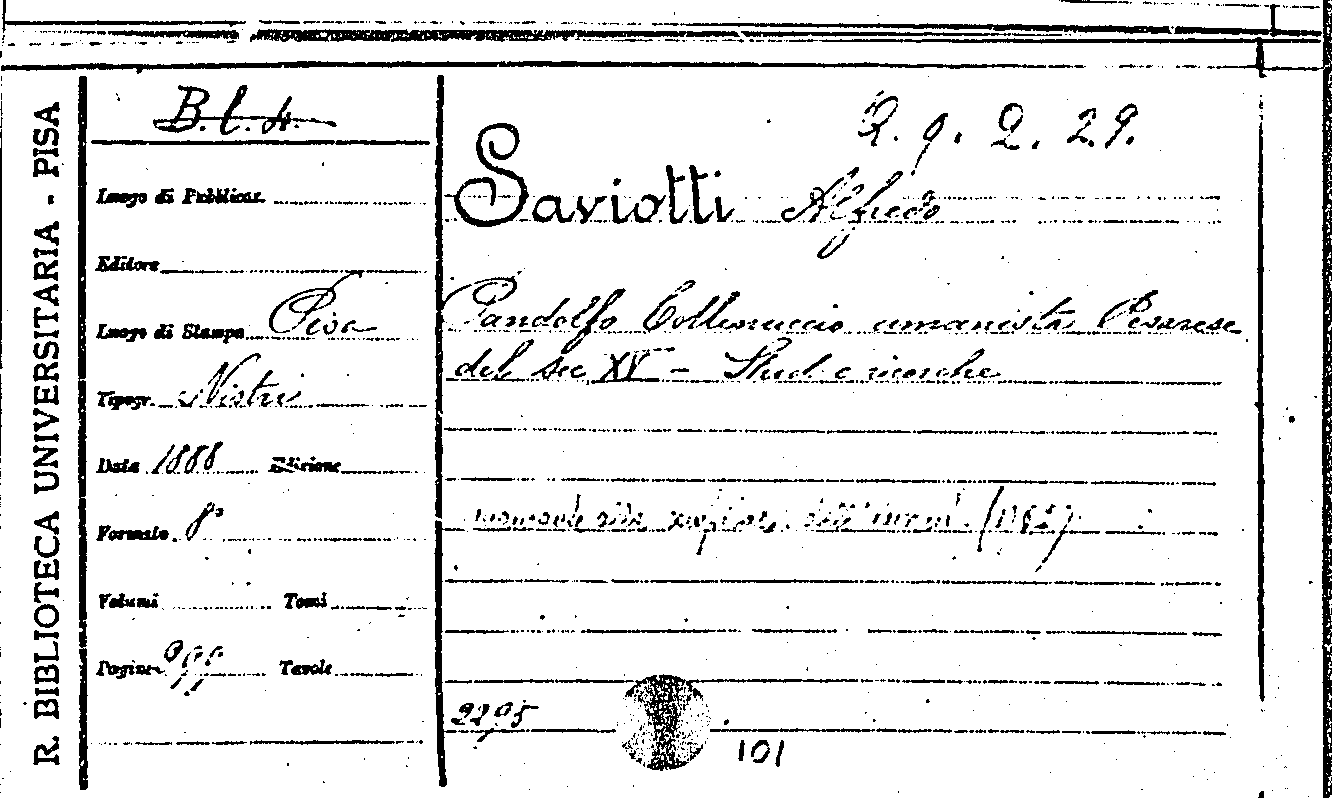 R. BIBLIOTECA UNIVERSITARIA - PISA
B.l.4.
Luogo di Pubblicaz.
Editore
Luogo di Stampa Pisa
Tipogr. Nistri
Data 1888 Edizione
Formato 8°
Volumi Tomi
Pagine 299 Tavole
Q. q. 2. 29.
Saviotti Alfredo
Pandolfo Collenuccio umanista Pesarese
del sec XV - Studi e ricerche
2295
101